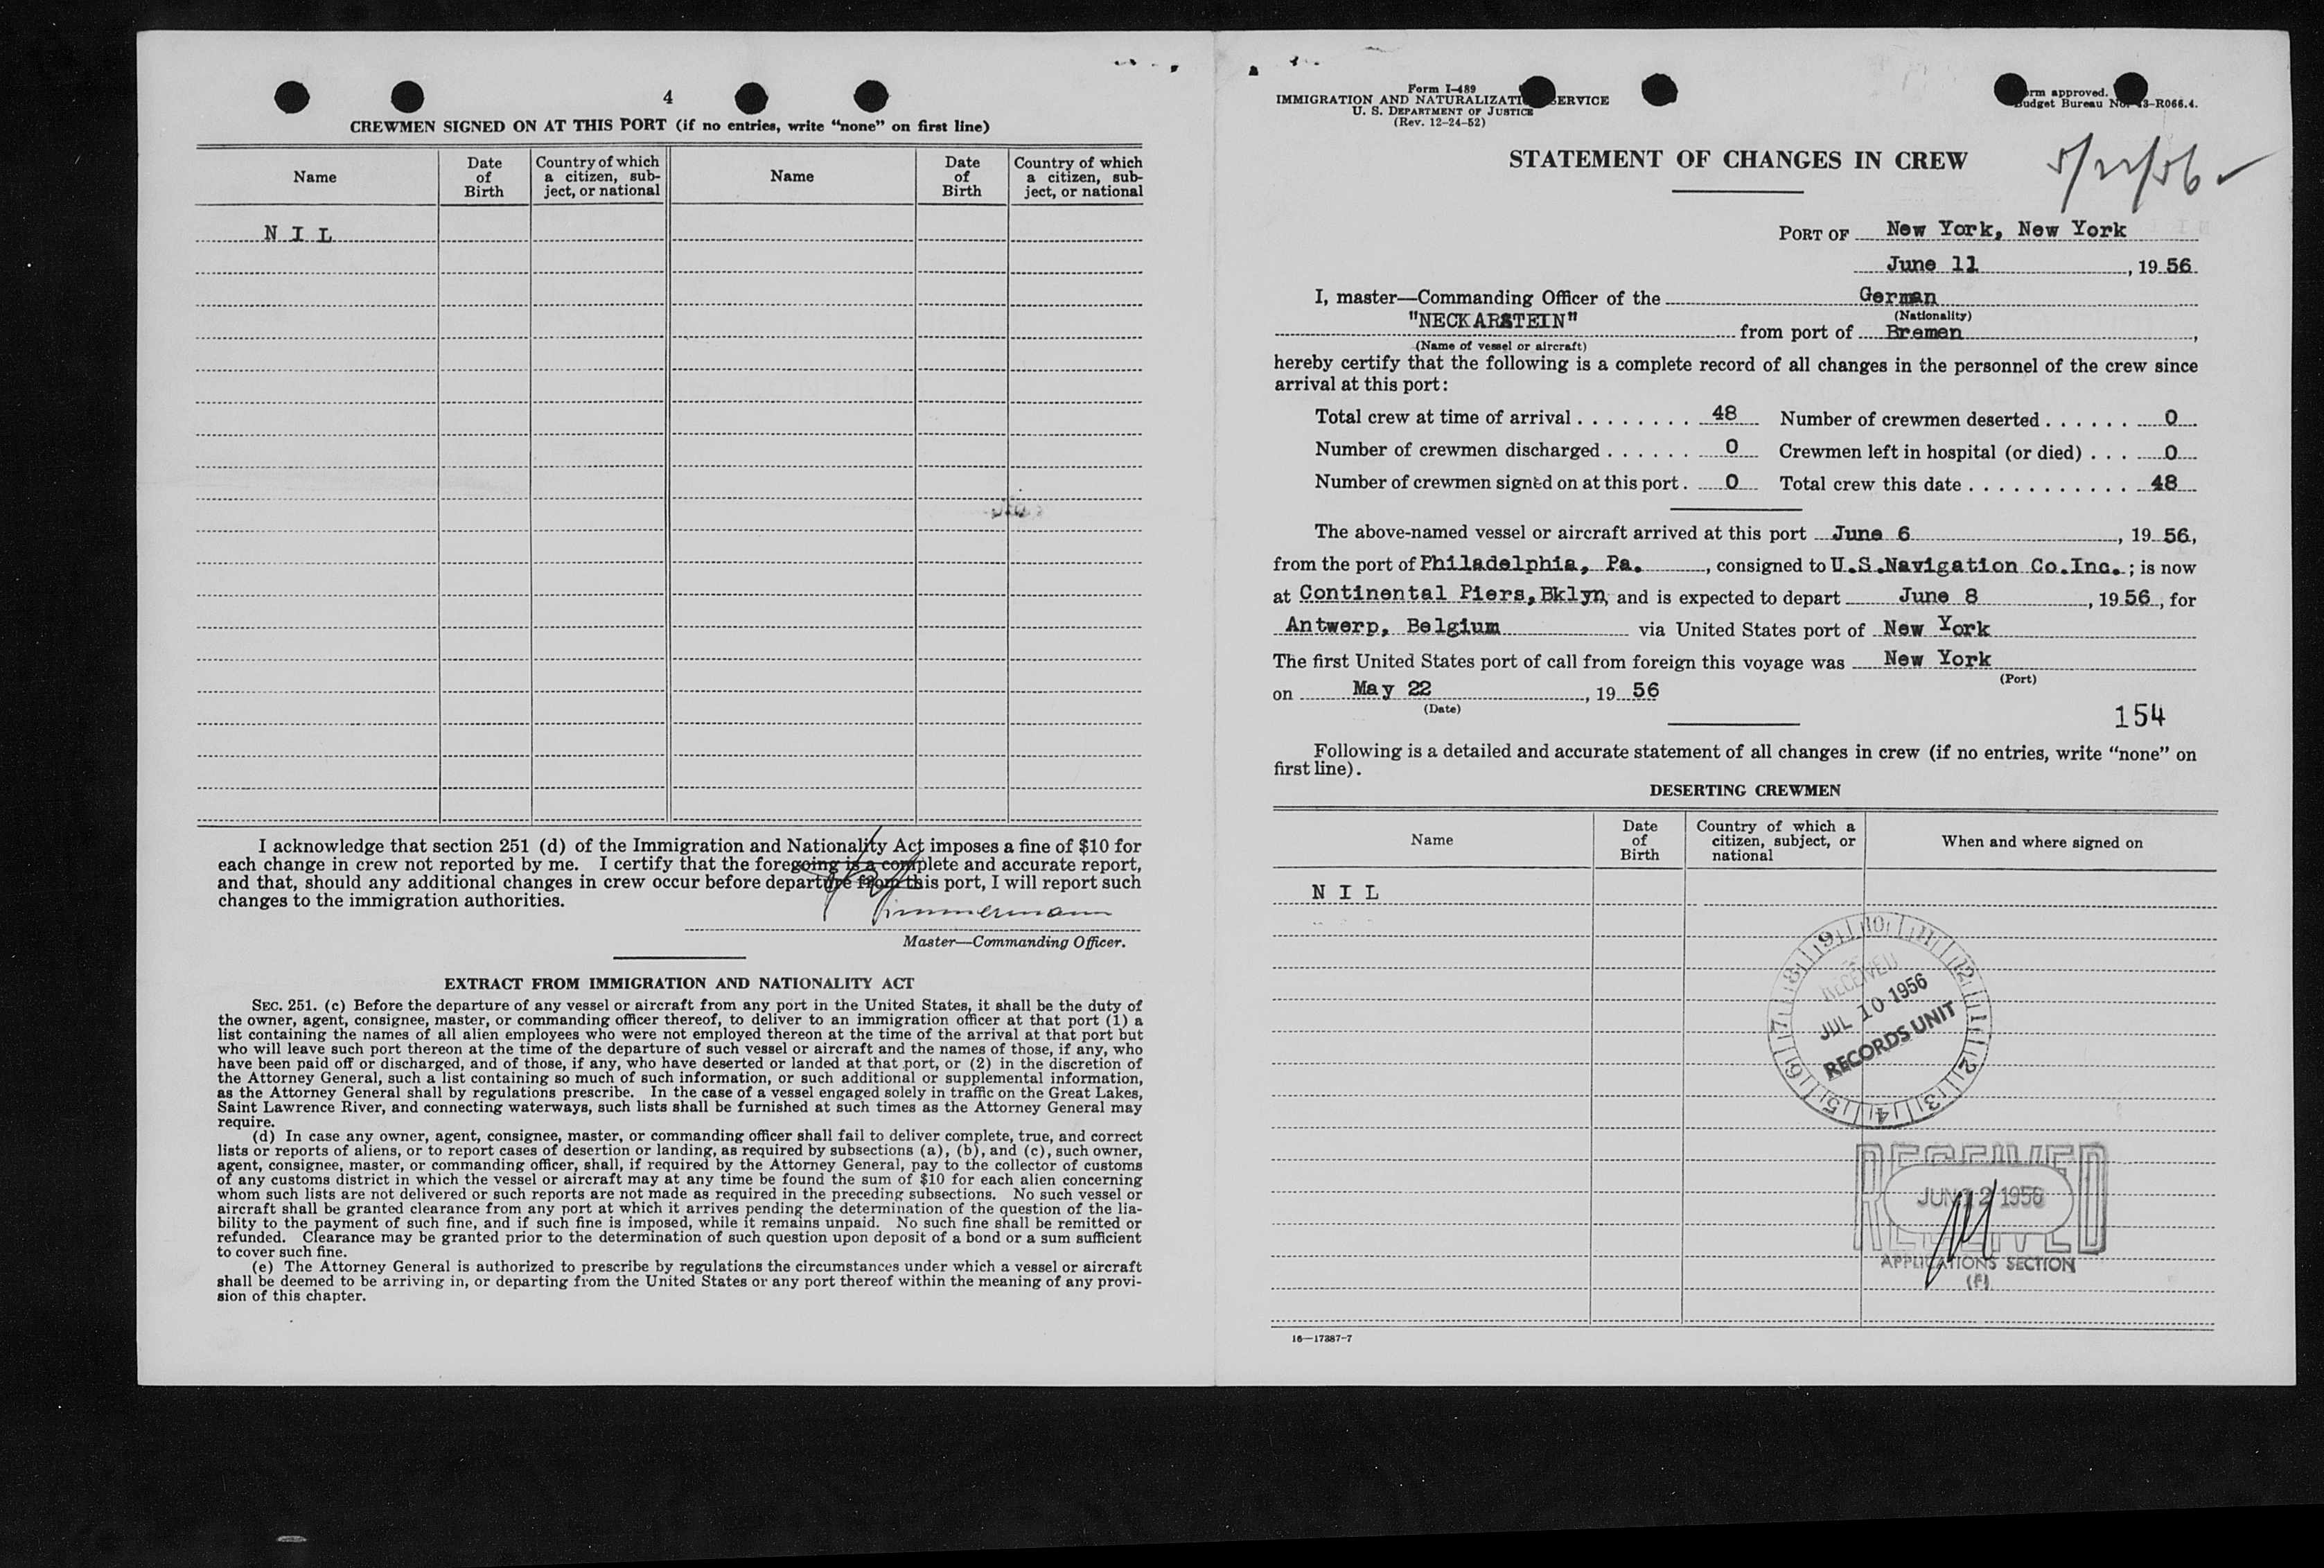 4
CREWMEN SIGNED ON AT THIS PORT (if no entries, write “none” on first line)
Name
Date of Birth
Country of which a citizen, subject, or national
Name
Date of Birth
Country of which a citizen, subject, or national
N I L
I acknowledge that section 251 (d) of the Immigration and Nationality Act imposes a fine of $10 for
each change in crew not reported by me. I certify that the foregoing is a complete and accurate report,
and that, should any additional changes in crew occur before departure from this port, I will report such
changes to the immigration authorities.
Zimmermann
Master—Commanding Officer.
EXTRACT FROM IMMIGRATION AND NATIONALITY ACT
SEC. 251. (c) Before the departure of any vessel or aircraft from any port in the United States, it shall be the duty of
the owner, agent, consignee, master, or commanding officer thereof, to deliver to an immigration officer at that port (1) a
list containing the names of all alien employees who were not employed thereon at the time of the arrival at that port but
who will leave such port thereon at the time of the departure of such vessel or aircraft and the names of those, if any, who
have been paid off or discharged, and of those, if any, who have deserted or landed at that port, or (2) in the discretion of
the Attorney General, such a list containing so much of such information, or such additional or supplemental information,
as the Attorney General shall by regulations prescribe. In the case of a vessel engaged solely in traffic on the Great Lakes,
Saint Lawrence River, and connecting waterways, such lists shall be furnished at such times as the Attorney General may
require.
(d) In case any owner, agent, consignee, master, or commanding officer shall fail to deliver complete, true, and correct
lists or reports of aliens, or to report cases of desertion or landing, as required by subsections (a), (b), and (c), such owner,
agent, consignee, master, or commanding officer, shall, if required by the Attorney General, pay to the collector of customs
of any customs district in which the vessel or aircraft may at any time be found the sum of $10 for each alien concerning
whom such lists are not delivered or such reports are not made as required in the preceding subsections. No such vessel or
aircraft shall be granted clearance from any port at which it arrives pending the determination of the question of the lia-
bility to the payment of such fine, and if such fine is imposed, while it remains unpaid. No such fine shall be remitted or
refunded. Clearance may be granted prior to the determination of such question upon deposit of a bond or a sum sufficient
to cover such fine.
(e) The Attorney General is authorized to prescribe by regulations the circumstances under which a vessel or aircraft
shall be deemed to be arriving in, or departing from the United States or any port thereof within the meaning of any provi-
sion of this chapter.
Form I-489
IMMIGRATION AND NATURALIZATI ERVICE
U. S. DEPARTMENT OF JUSTICE
(Rev. 12-24-52)
rm approved.
udget Bureau No. 43-R066.4.
STATEMENT OF CHANGES IN CREW
5/22/56
PORT OF New York, New York
June 11, 19 56
I, master—Commanding Officer of the German
(Nationality)
"NECKARSTEIN" from port of Bremen,
(Name of vessel or aircraft)
hereby certify that the following is a complete record of all changes in the personnel of the crew since
arrival at this port:
Total crew at time of arrival . . . . . . . . 48 Number of crewmen deserted . . . . . . 0
Number of crewmen discharged . . . . . . 0 Crewmen left in hospital (or died) . . . 0
Number of crewmen signed on at this port . 0 Total crew this date . . . . . . . . . . . 48
The above-named vessel or aircraft arrived at this port June 6, 19 56,
from the port of Philadelphia, Pa., consigned to U.S.Navigation Co.Inc.; is now
at Continental Piers,Bklyn, and is expected to depart June 8, 19 56, for
Antwerp, Belgium via United States port of New York
The first United States port of call from foreign this voyage was New York
(Port)
on May 22, 19 56
(Date)
154
Following is a detailed and accurate statement of all changes in crew (if no entries, write “none” on
first line).
DESERTING CREWMEN
Name
Date of Birth
Country of which a citizen, subject, or national
When and where signed on
N I L
9 10 11 12 1 2 3 4 5 6 7 8
RECEIVED
JUL 10 1956
RECORDS UNIT
RECEIVED
JUN 12 1956
APPLICATIONS SECTION
(F)
16—17387-7